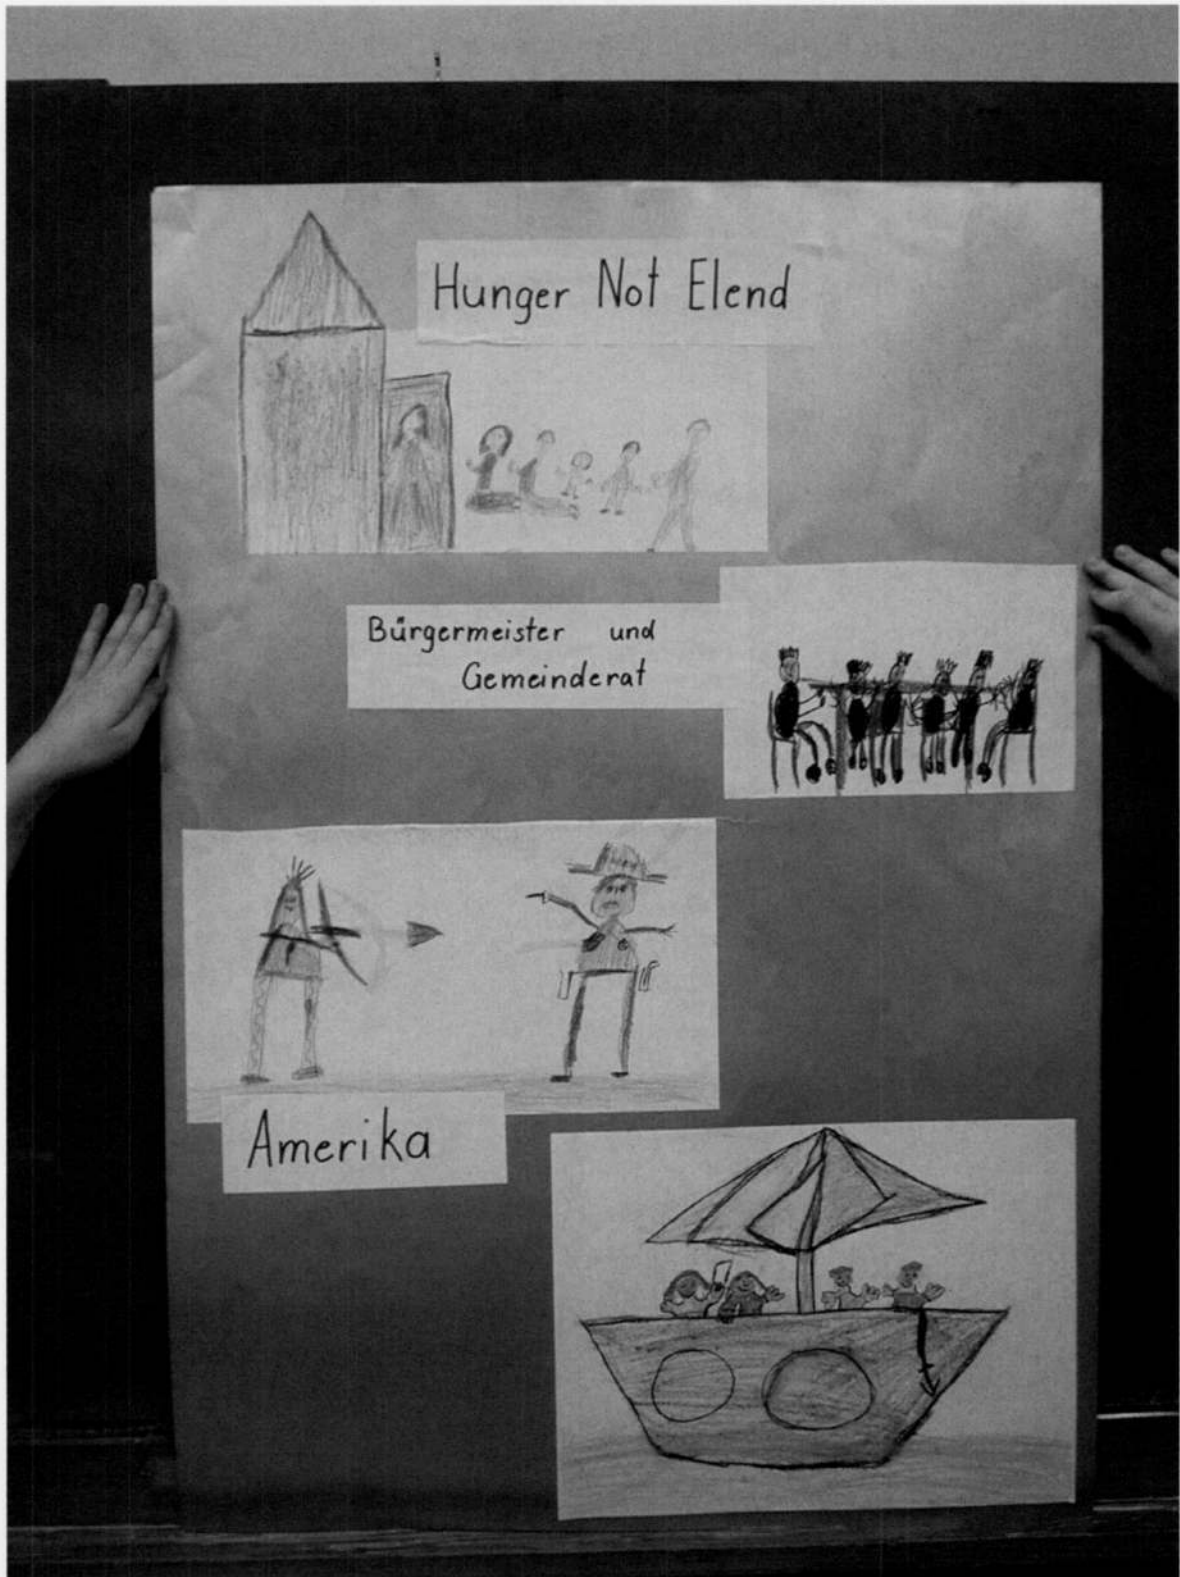 Hunger Not Elend
Bürgermeister und
Gemeinderat
Amerika